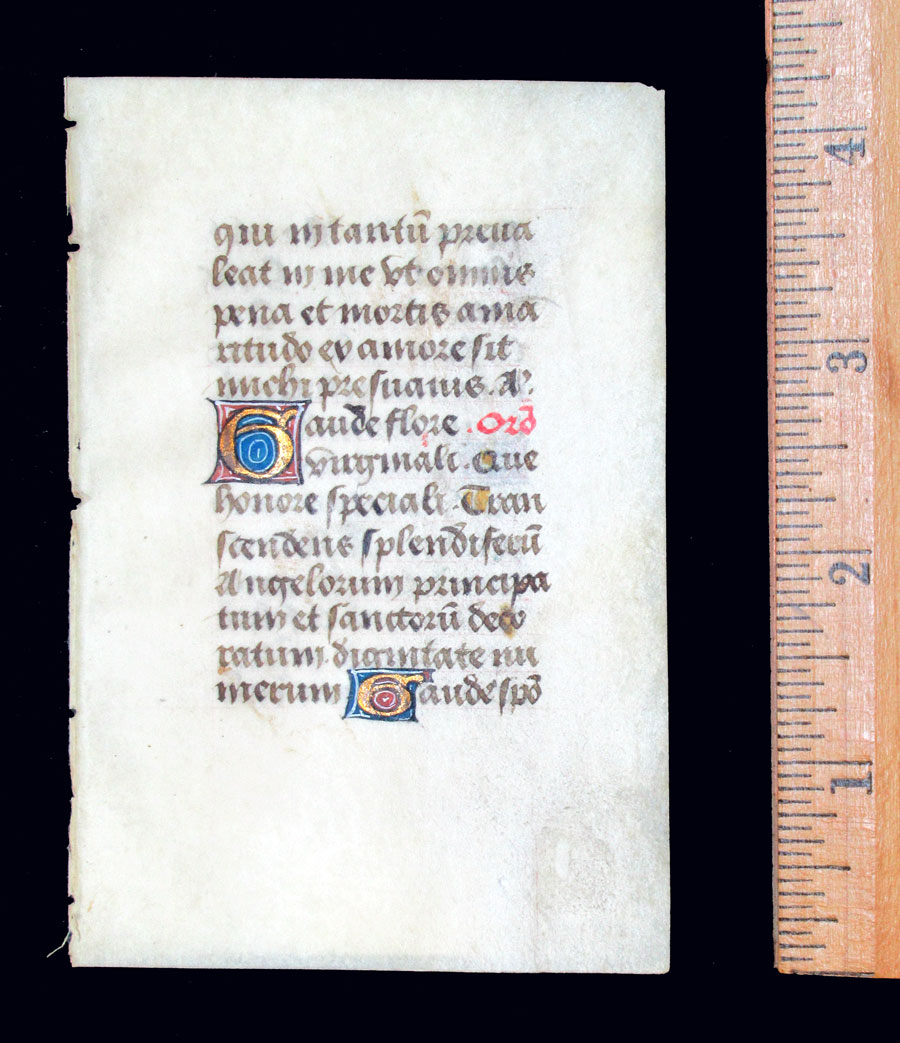 qui in tantū preua
leat in me vt omnis
pena et mortis ama
ritudo ex amore sit
michi presuauis. A.
Gaude flore . Orō
virginali. Que
honore speciali. Tran
scendens splendiferū
Angelorum principa
tum et sanctorū deco
ratum. dignitate nu
merum Gaude spō
4
3
2
1